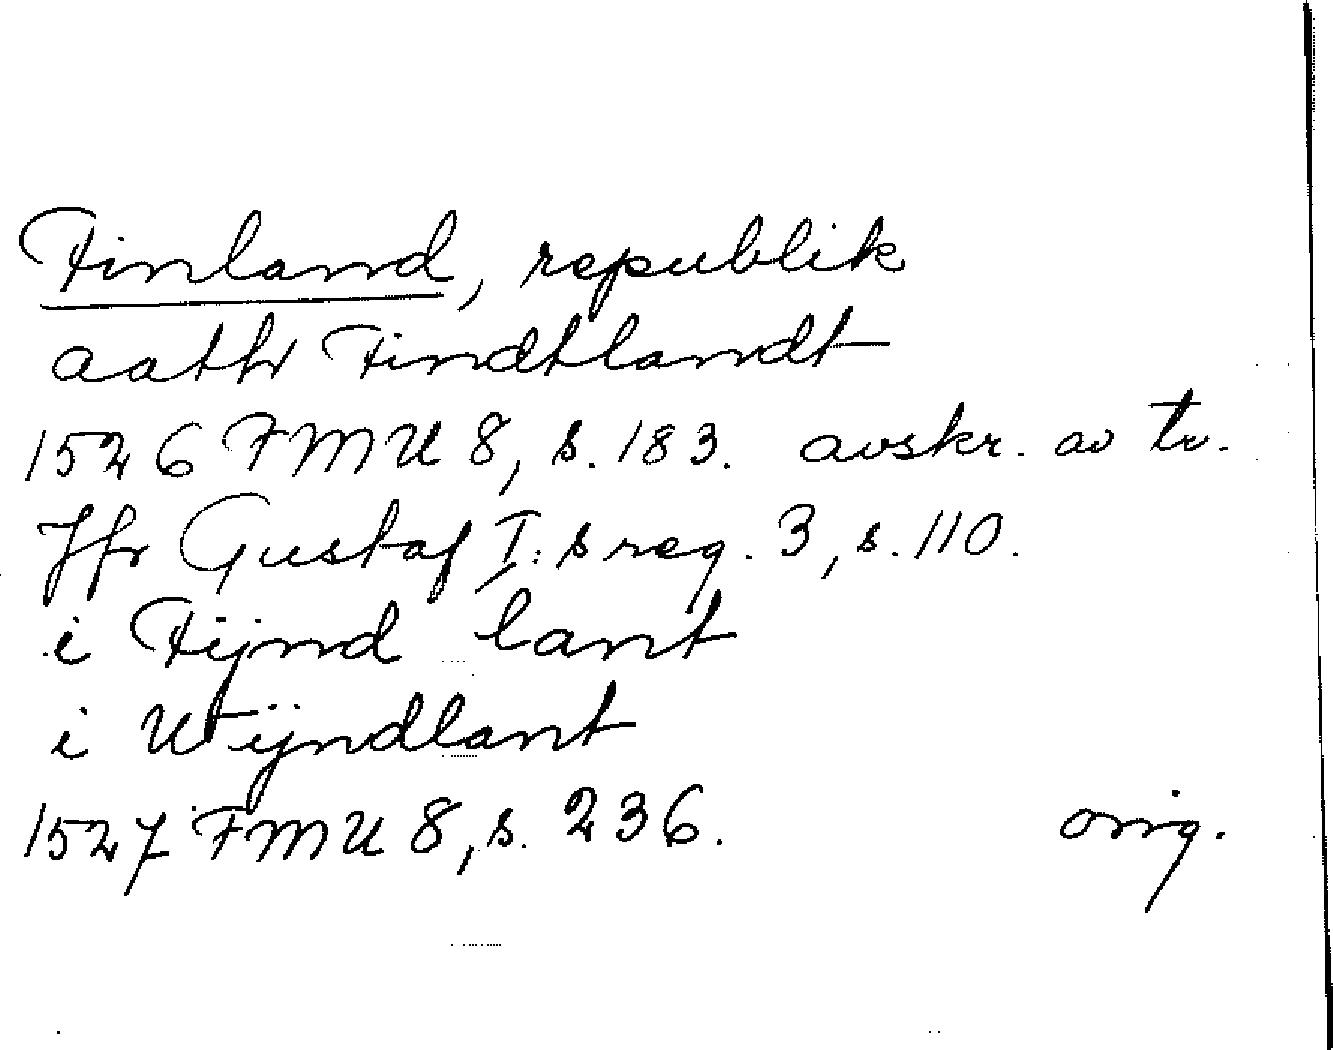 Finland, republik
aathr Findtlandt
1526 FMU 8, s. 183. avskr. av tr.
Jfr Gustaf I:s reg. 3, s. 110.
i Fijnd lant
i Wijndlant
1527 FMU 8, s. 236. orig.